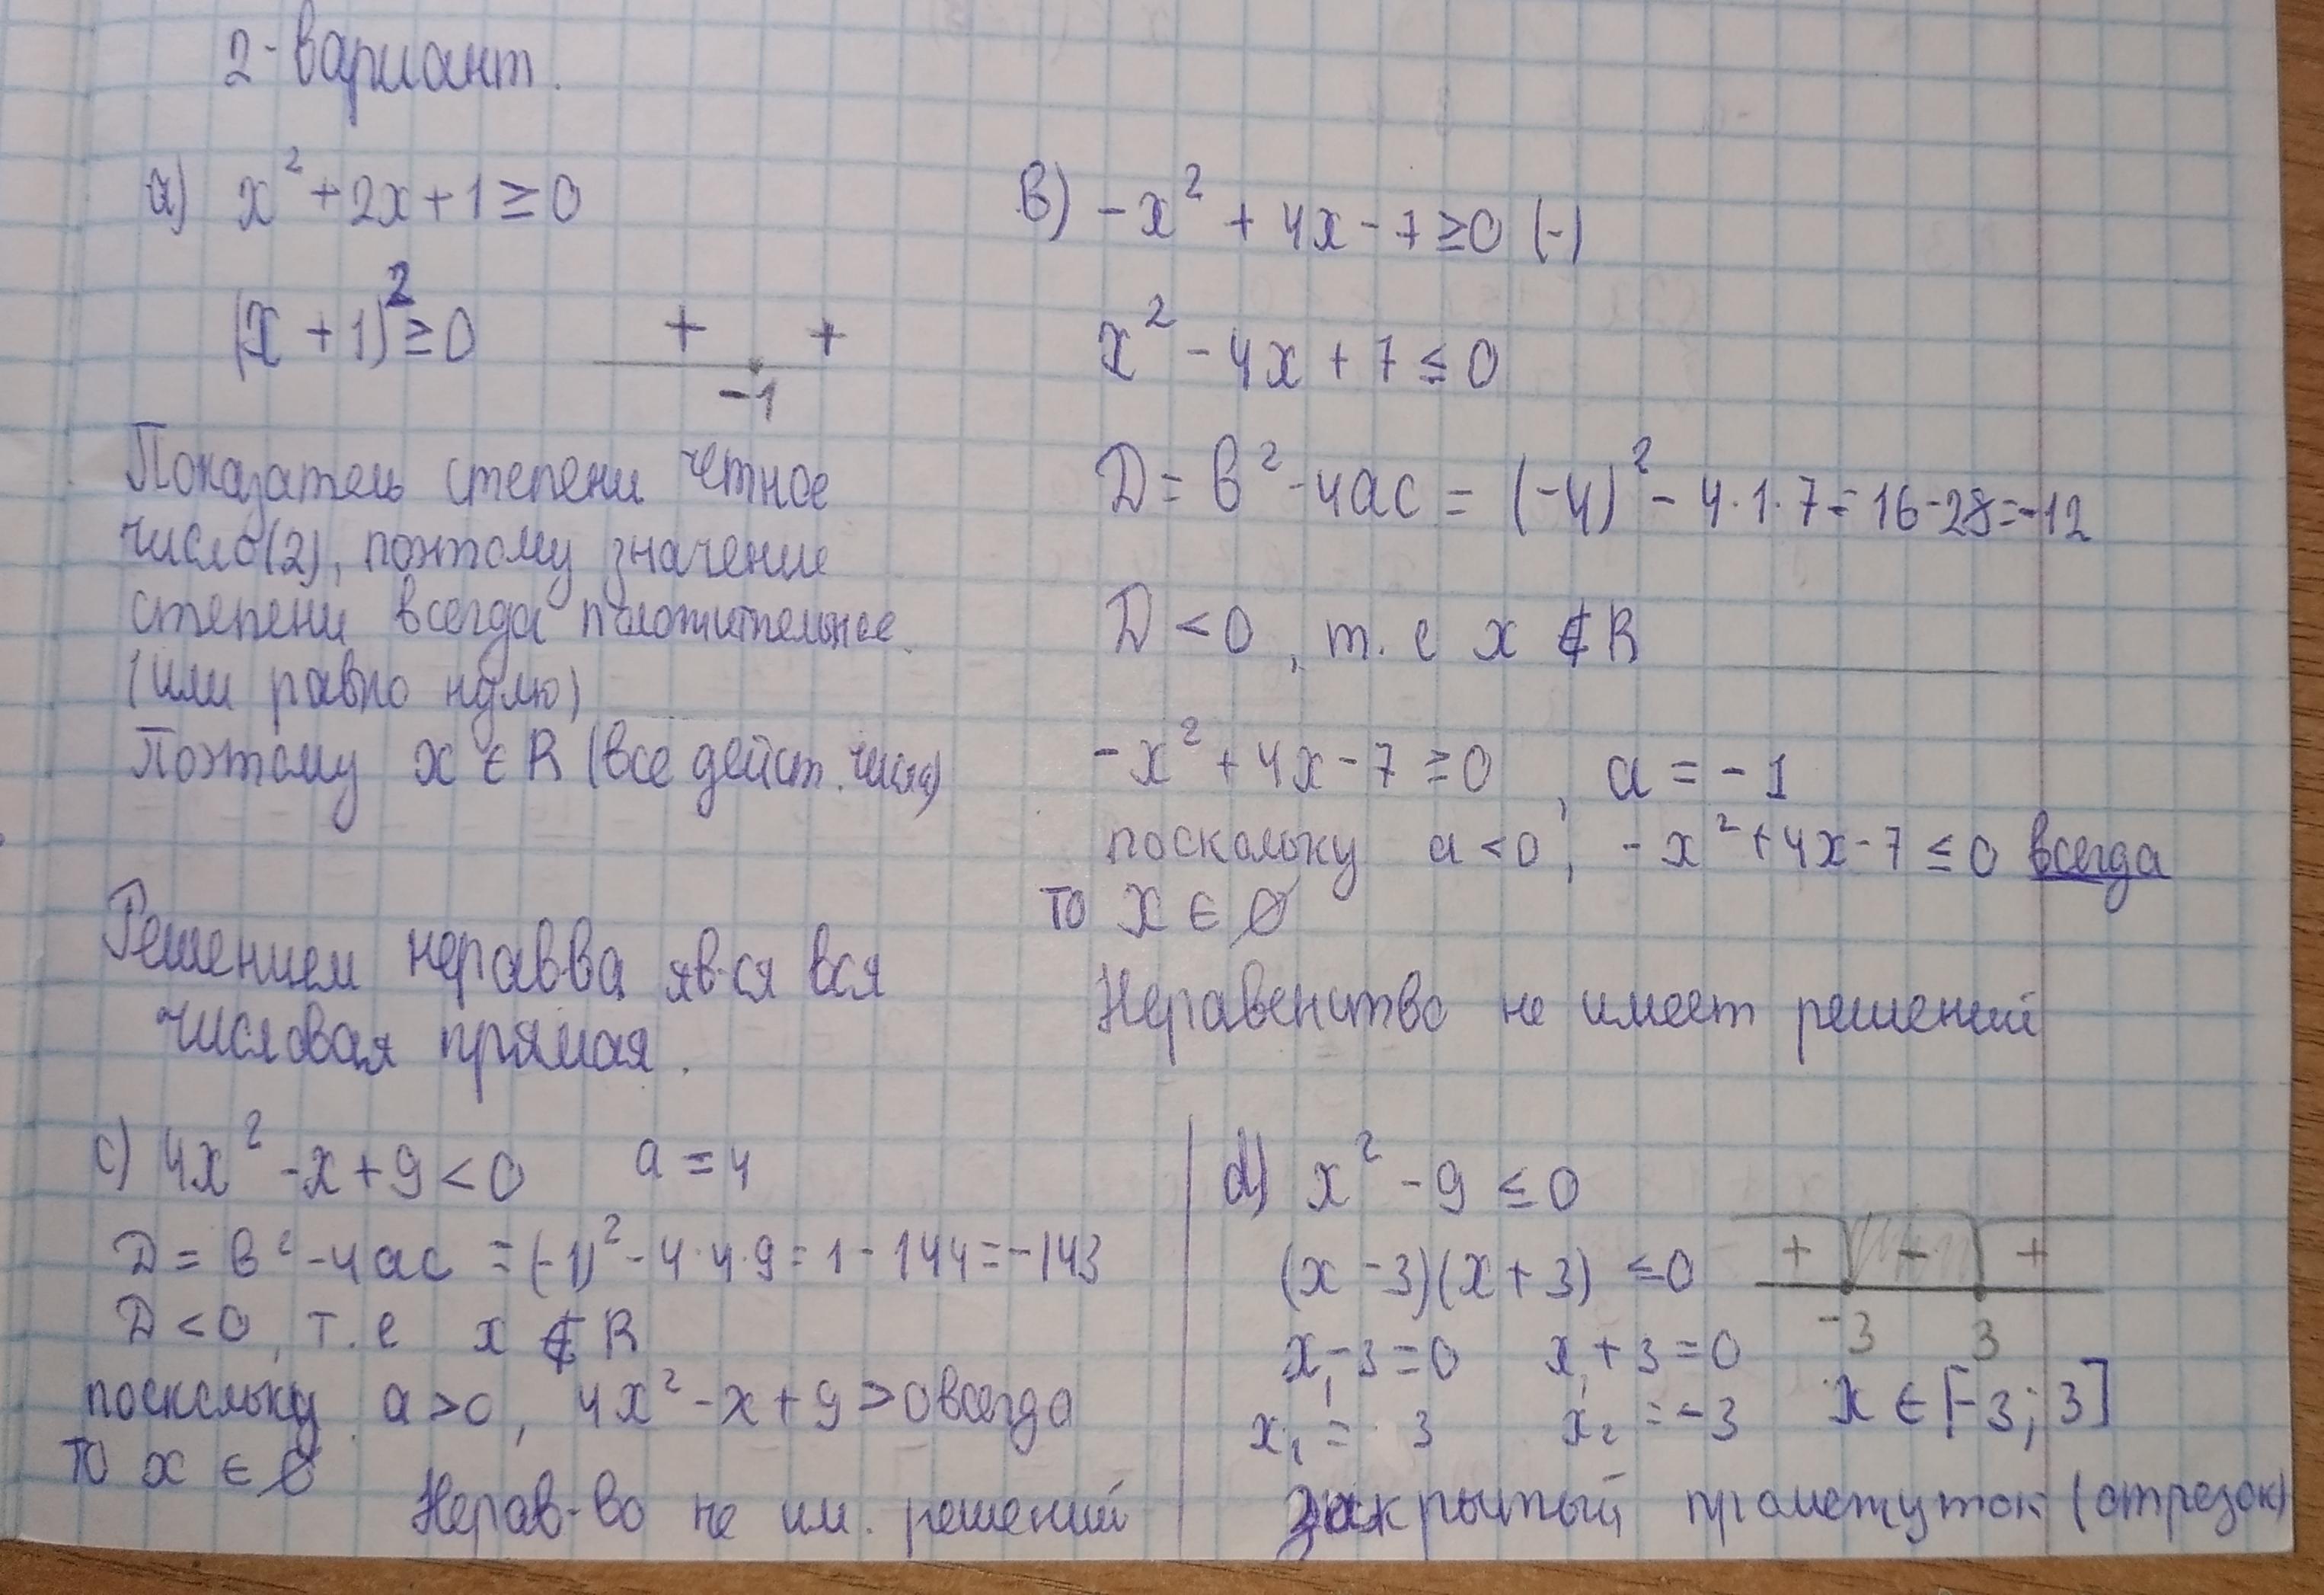 2-вариант.
a) x² + 2x + 1 ≥ 0
(x + 1)² ≥ 0
+ +
-1
Показатель степени четное
число(2), поэтому значение
степени всегда положительное.
(или равно нулю)
Поэтому x ∈ R (все дейст. числа)
Решением нерав-ва яв-ся вся
числовая прямая.
в) -x² + 4x - 7 ≥ 0 (-)
x² - 4x + 7 ≤ 0
D = в² - 4ac = (-4)² - 4·1·7 = 16-28=-12
D < 0, т.е x ∉ R
-x² + 4x - 7 ≥ 0, a = -1
поскольку a < 0, -x² + 4x - 7 ≤ 0 всегда
то x ∈ ∅
Неравенство не имеет решений
c) 4x² - x + 9 < 0 a = 4
D = в² - 4ac = (-1)² - 4·4·9 = 1 - 144 = -143
D < 0, т.е x ∉ R
поскольку a > 0, 4x² - x + 9 > 0 всегда
то x ∈ ∅
Нерав-во не им. решений
d) x² - 9 ≤ 0
(x - 3)(x + 3) ≤ 0
+ - +
-3 3
x₁ - 3 = 0 x₁ + 3 = 0
x₁ = 3 x₂ = -3 x ∈ [-3; 3]
закрытый промежуток (отрезок)